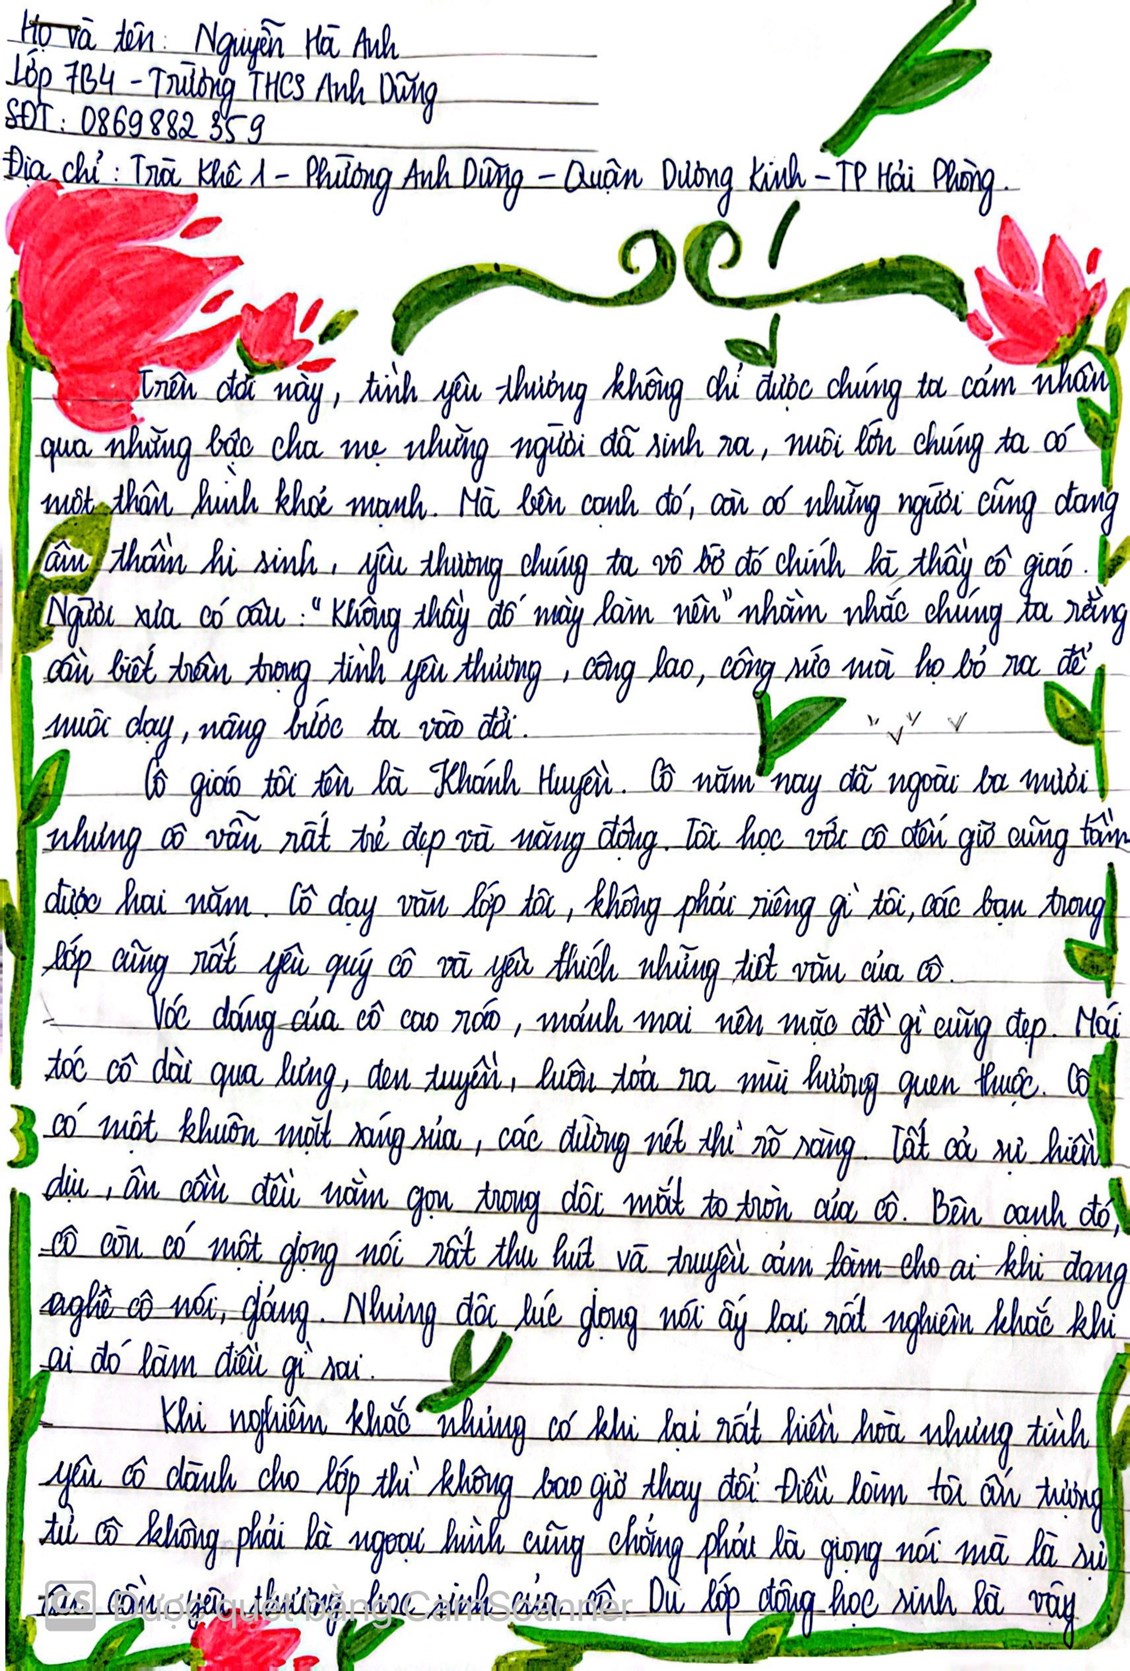 Họ và tên: Nguyễn Hà Anh
Lớp 7B4 - Trường THCS Anh Dũng
SĐT: 0869882359
Địa chỉ: Trà Khê 1 - Phường Anh Dũng - Quận Dương Kinh - TP Hải Phòng.
Trên đời này, tình yêu thương không chỉ được chúng ta cảm nhận
qua những bậc cha mẹ những người đã sinh ra, nuôi lớn chúng ta có
một thân hình khoẻ mạnh. Mà bên cạnh đó, còn có những người cũng đang
âm thầm hi sinh, yêu thương chúng ta vô bờ đó chính là thầy cô giáo.
Người xưa có câu: "Không thầy đố mày làm nên" nhằm nhắc chúng ta rằng
cần biết trân trọng tình yêu thương, công lao, công sức mà họ bỏ ra để
nuôi dạy, nâng bước ta vào đời.
Cô giáo tôi tên là Khánh Huyền. Cô năm nay đã ngoài ba mươi
nhưng cô vẫn rất trẻ đẹp và năng động. Tôi học với cô đến giờ cũng tầm
được hai năm. Cô dạy văn lớp tôi, không phải riêng gì tôi, các bạn trong
lớp cũng rất yêu quý cô và yêu thích những tiết văn của cô.
Vóc dáng của cô cao ráo, mảnh mai nên mặc đồ gì cũng đẹp. Mái
tóc cô dài qua lưng, đen tuyền, luôn tỏa ra mùi hương quen thuộc. Cô
có một khuôn mặt sáng sủa, các đường nét thì rõ ràng. Tất cả sự hiền
dịu, ân cần đều nằm gọn trong đôi mắt to tròn của cô. Bên cạnh đó,
cô còn có một giọng nói rất thu hút và truyền cảm làm cho ai khi đang
nghe cô nói, giảng. Nhưng đôi lúc giọng nói ấy lại rất nghiêm khắc khi
ai đó làm điều gì sai.
Khi nghiêm khắc nhưng có khi lại rất hiền hòa nhưng tình
yêu cô dành cho lớp thì không bao giờ thay đổi. Điều làm tôi ấn tượng
từ cô không phải là ngoại hình cũng chẳng phải là giọng nói mà là sự
tận tâm yêu thương học sinh của cô. Dù lớp đông học sinh là vậy
CS Được quét bằng CamScanner